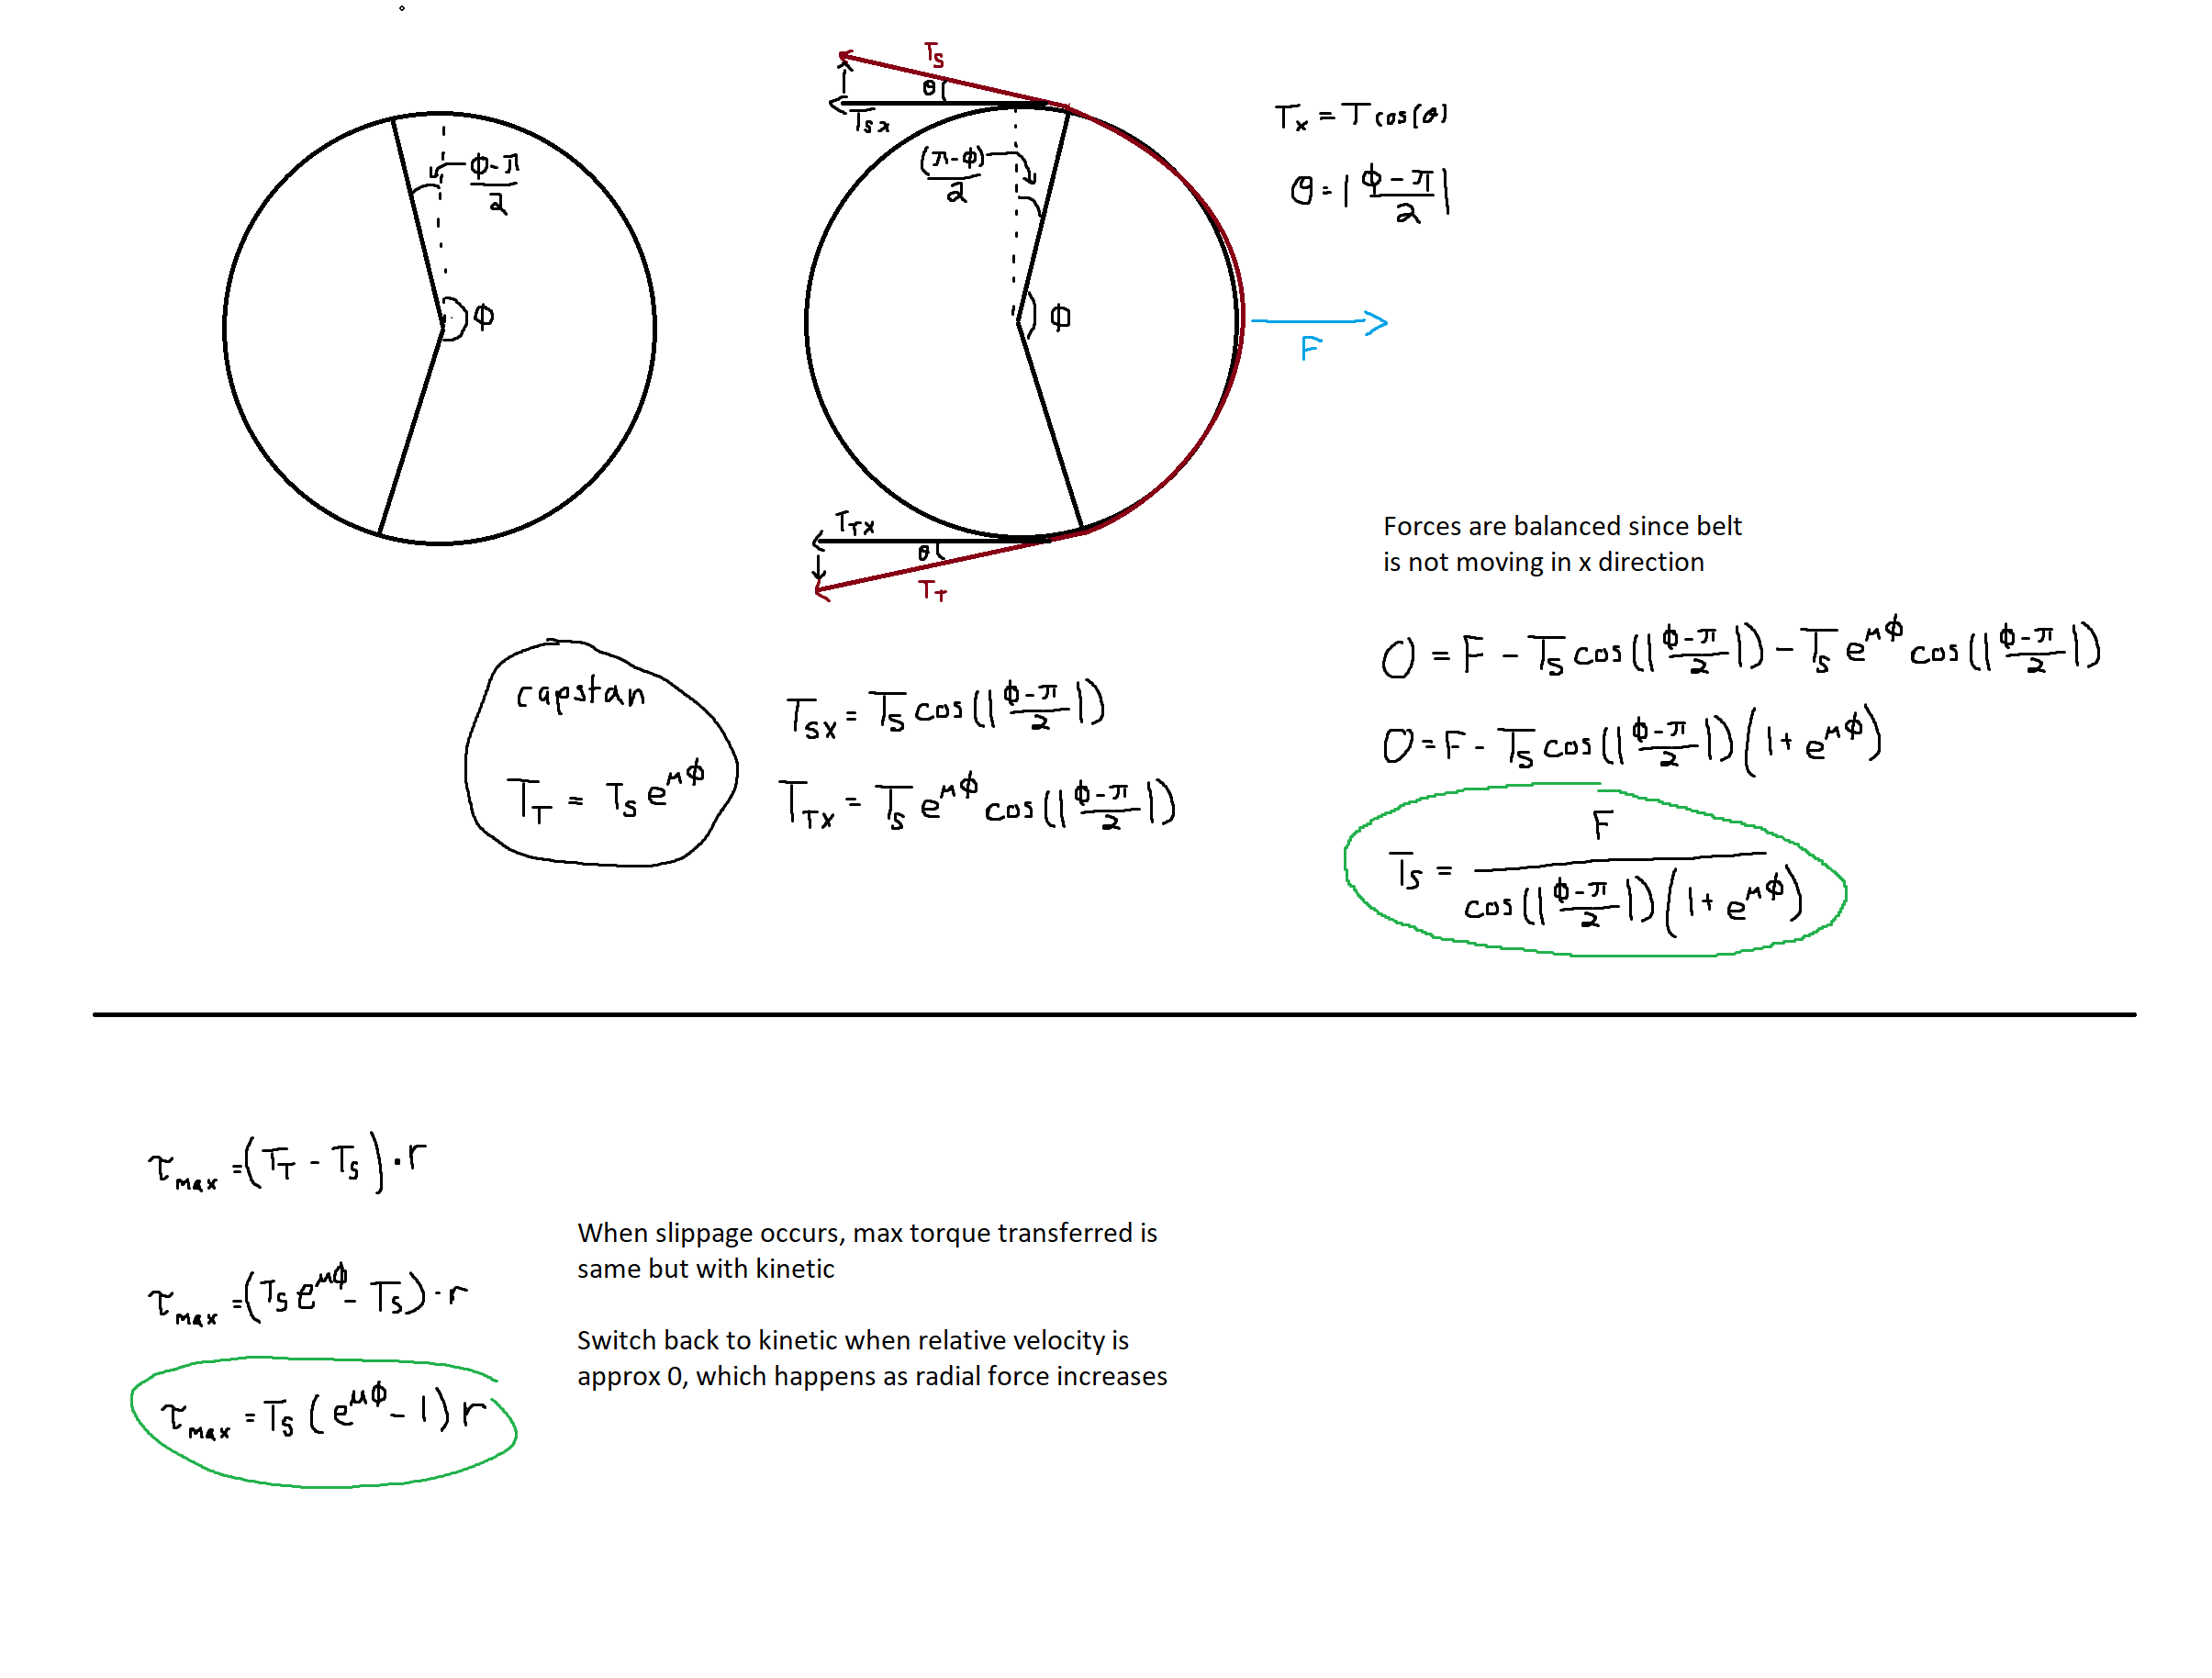 φ-π
2
φ
T_S
θ
T_Sx
(π-φ)
2
φ
F
T_TX
θ
T_T
T_x = T cos(θ)
θ = |φ-π/2|
Forces are balanced since belt
is not moving in x direction
capstan
T_T = T_S e^μφ
T_SX = T_S cos(|φ-π/2|)
T_TX = T_S e^μφ cos(|φ-π/2|)
0 = F - T_S cos(|φ-π/2|) - T_S e^μφ cos(|φ-π/2|)
0 = F - T_S cos(|φ-π/2|)(1 + e^μφ)
T_S = F / cos(|φ-π/2|)(1 + e^μφ)
τ_max = (T_T - T_S) · r
τ_max = (T_S e^μφ - T_S) · r
τ_max = T_S (e^μφ - 1) r
When slippage occurs, max torque transferred is
same but with kinetic
Switch back to kinetic when relative velocity is
approx 0, which happens as radial force increases